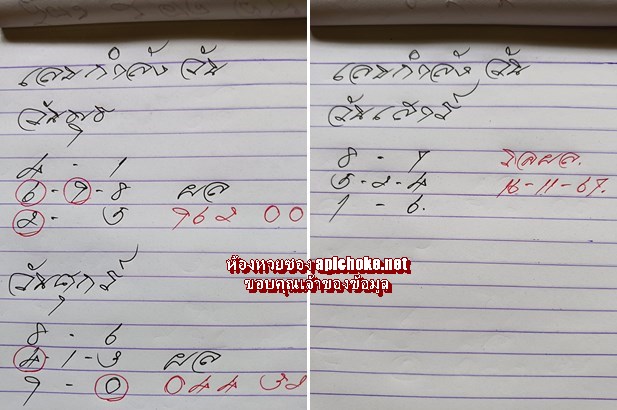 เลขกำลังวัน
วันพุธ
4 - 1
6 - 9 - 8 ผล
2 - 5 962 00
วันศุกร์
8 - 6
4 - 1 - 3 ผล
9 - 0 044 32
เลขกำลังวัน
วันเสาร์
8 - 9 รอผล.
5 - 2 - 4 16-11-67.
1 - 6.
ห้องหวยซอง apichoke.net
ขอบคุณเจ้าของข้อมูล